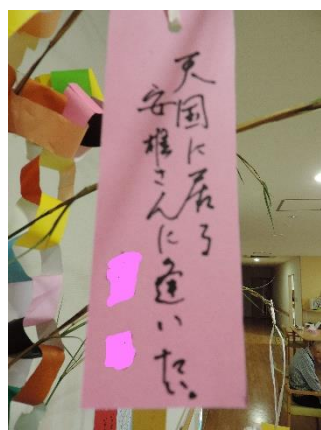 天国に居る
安雄さんに逢いたい。